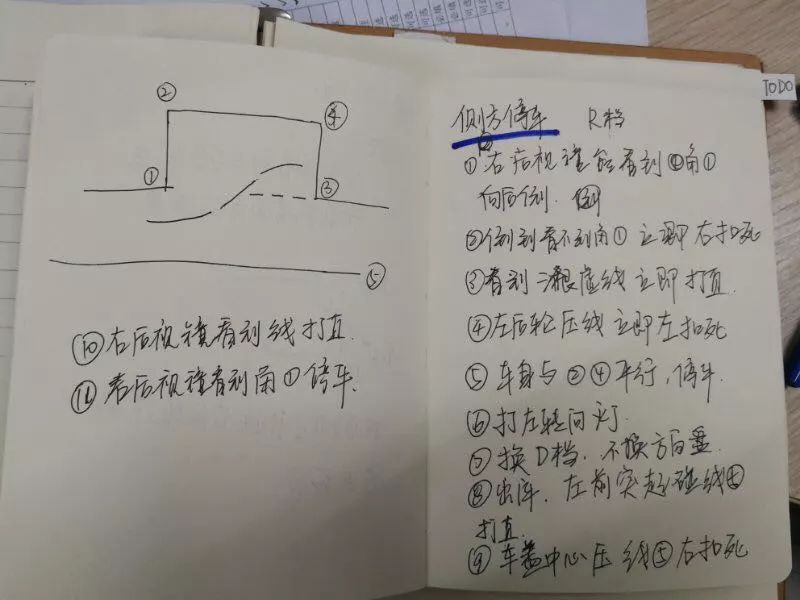 ②
④
①
③
⑤
⑩右后视镜看到线打直.
⑪右后视镜看到角①停车.
TODO
侧方停车 R档
①右后视镜能看到角①
向后倒.
②倒到看不到角①立即右扣死
③看到虚线立即打直.
④左后轮压线立即左扣死
⑤车身与②④平行,停车.
⑥打左转向灯.
⑦换D档.不换方向盘.
⑧出库.左前突起碰线⑤
打直.
⑨车盖中心压线⑤右扣死